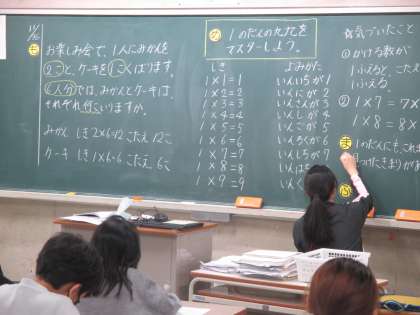 お楽しみ会で、1人にみかんを
2こと、ケーキを1こくばります。
6人分では、みかんとケーキは
それぞれ何こいりますか。
みかん しき2×6=12 こたえ 12こ
ケーキ しき1×6=6 こたえ 6こ
め
1のだんの九九を
マスターしよう。
しき よみかた
1×1=1 いんいちが1
1×2=2 いんにが2
1×3=3 いんさんが3
1×4=4 いんしが4
1×5=5 いんごが5
1×6=6 いんろくが6
1×7=7 いんしちが7
1×8=8 いんはち
1×9=9 いんく
気づいたこと
① かける数が
1ふえると、こた
1ふえる。
② 1×7=7
1×8=8×
ま
1のだんにもこれま
見つけたきまりがあ